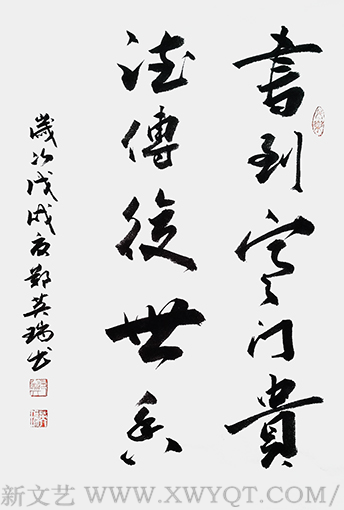 書到寒门貴
法傳後世香
歲次戊戌夏鄭英瑞书
新文艺 WWW.XWYQT.COM/